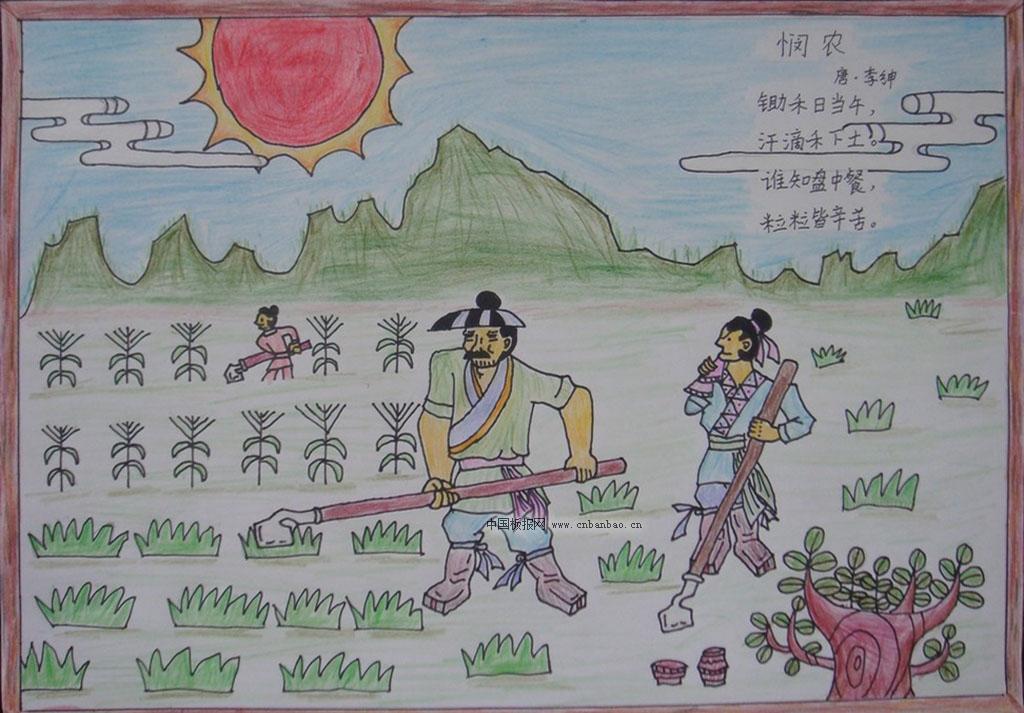 悯农
唐·李绅
锄禾日当午，
汗滴禾下土。
谁知盘中餐，
粒粒皆辛苦。
中国板报网 www.cnbanbao.cn